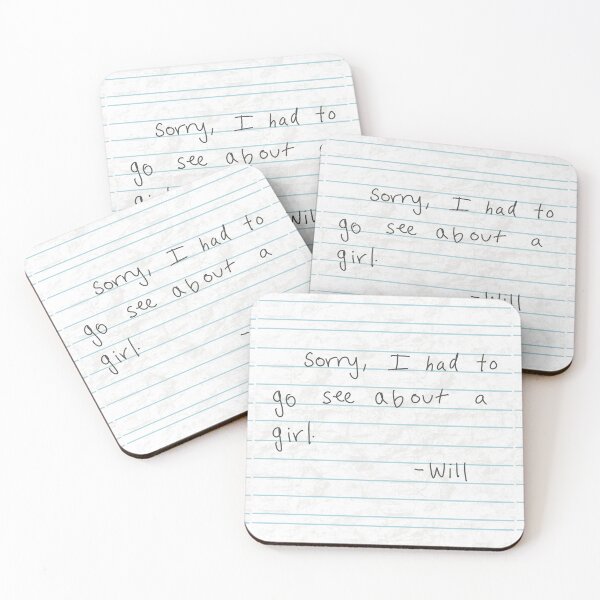 sorry, I had to
go see about
Will
sorry, I had to
go see about a
girl.
-Will
sorry, I had to
go see about a
girl.
-
sorry, I had to
go see about a
girl.
-Will